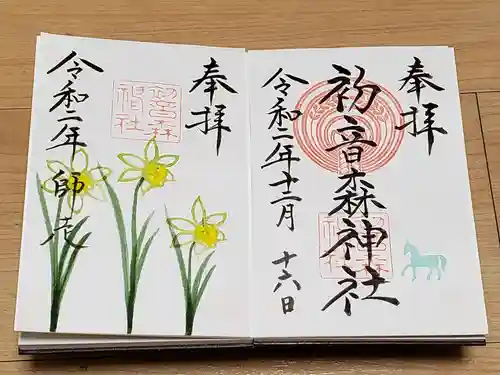 奉拝
初音森神社
令和二年十二月十六日
奉拝
初音森神社
令和二年師走